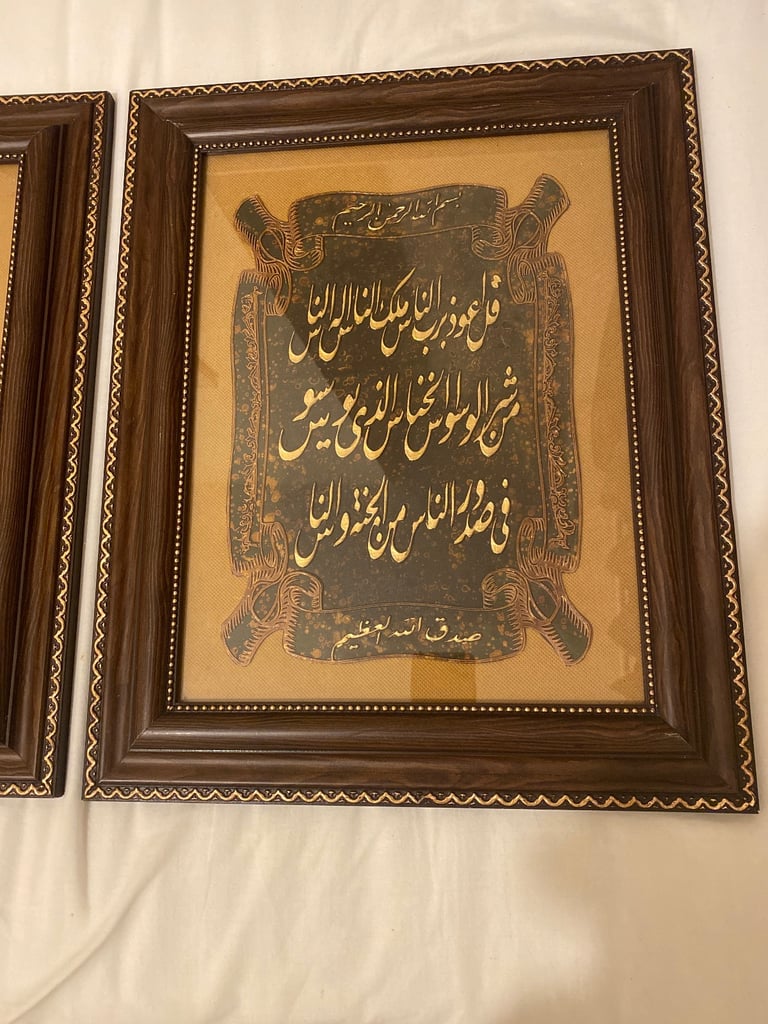 بسم الله الرحمن الرحيم
قل اعوذ برب الناس ملك الناس اله الناس
من شر الوسواس الخناس الذى يوسوس
فى صدور الناس من الجنة و الناس
صدق الله العظيم